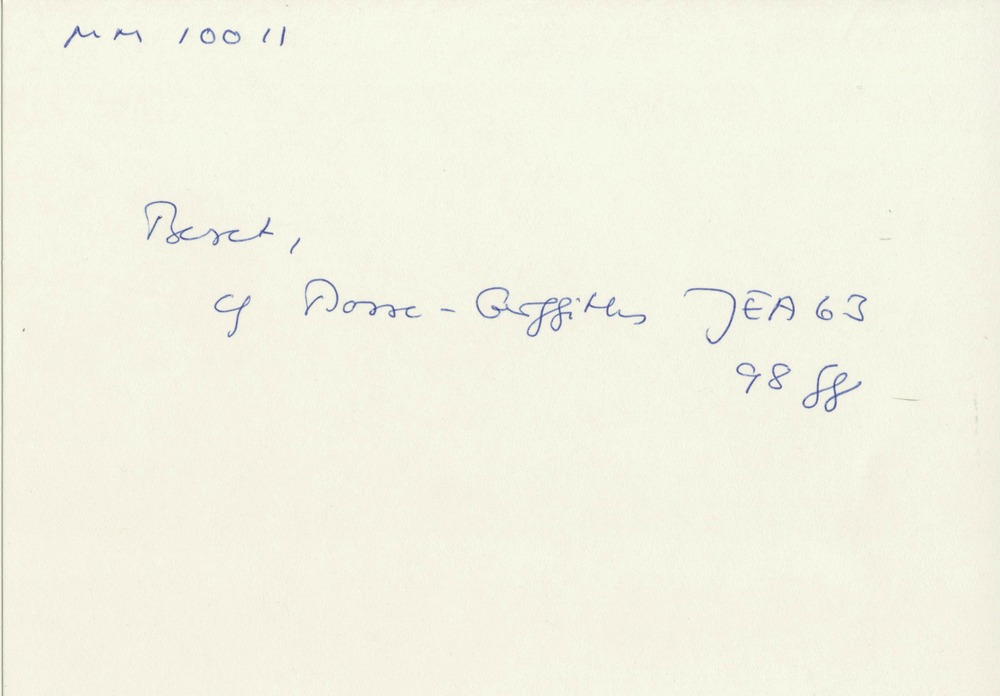 MM 10011
Beset,
cf Bosse-Griffiths JEA 63
98 ff